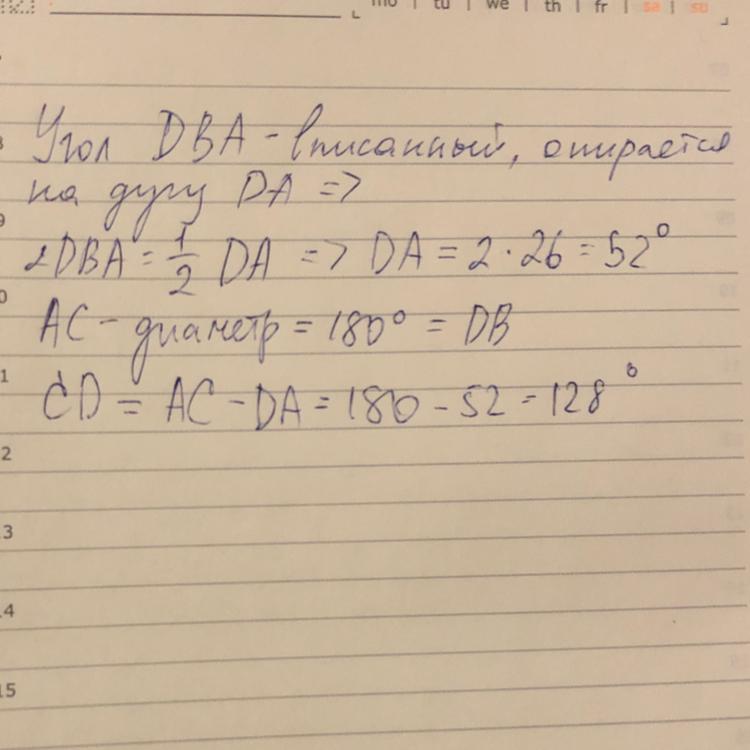 mo | tu | we | th | fr | sa | su
Угол DBA - вписанный, опирается
на дугу DA =>
∠DBA = 1/2 DA => DA = 2 · 26 = 52°
AC - диаметр = 180° = DB
CD = AC - DA = 180 - 52 = 128°
8
9
0
1
2
3
14
15